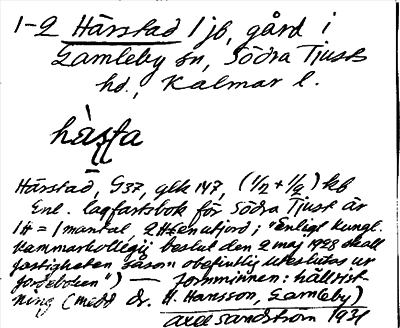 1-2 Härstad 1 jb, gård i
Gamleby sn, Södra Tjusts
hd., Kalmar l.
hàṣta
Härstad, G37, gek 147, (1/2 + 1/2) kb
Enl. lagfartsbok för Södra Tjust är
1 = 1 mantal, 2 "Enligt Kungl.
Kammarkollegij beslut den 2 maj 1928 skall
fastigheten såsom obefintlig uteslutas ur
jordeboken") — fornminnen: hällrist-
ning (medd dr. H. Hansson, Gamleby)
Axel Sandström 1931